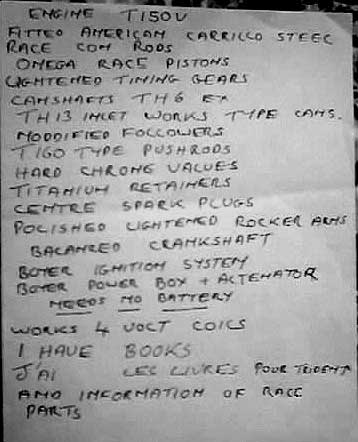 ENGINE T150V
FITTED AMERICAN CARRILLO STEEL
RACE CON RODS
OMEGA RACE PISTONS
LIGHTENED TIMING GEARS
CAMSHAFTS TH6 EX
TH13 INLET WORKS TYPE CAMS.
MODDIFIED FOLLOWERS
T160 TYPE PUSHRODS
HARD CHROME VALVES
TITANIUM RETAINERS
CENTRE SPARK PLUGS
POLISHED LIGHTENED ROCKER ARMS
BALANRED CRANKSHAFT
BOYER IGNITION SYSTEM
BOYER POWER BOX + ALTENATOR
NEEDS NO BATTERY
WORKS 4 VOLT COILS
I HAVE BOOKS
J'AI LES LIVRES POUR TRIDENT
AND INFORMATION OF RACE
PARTS